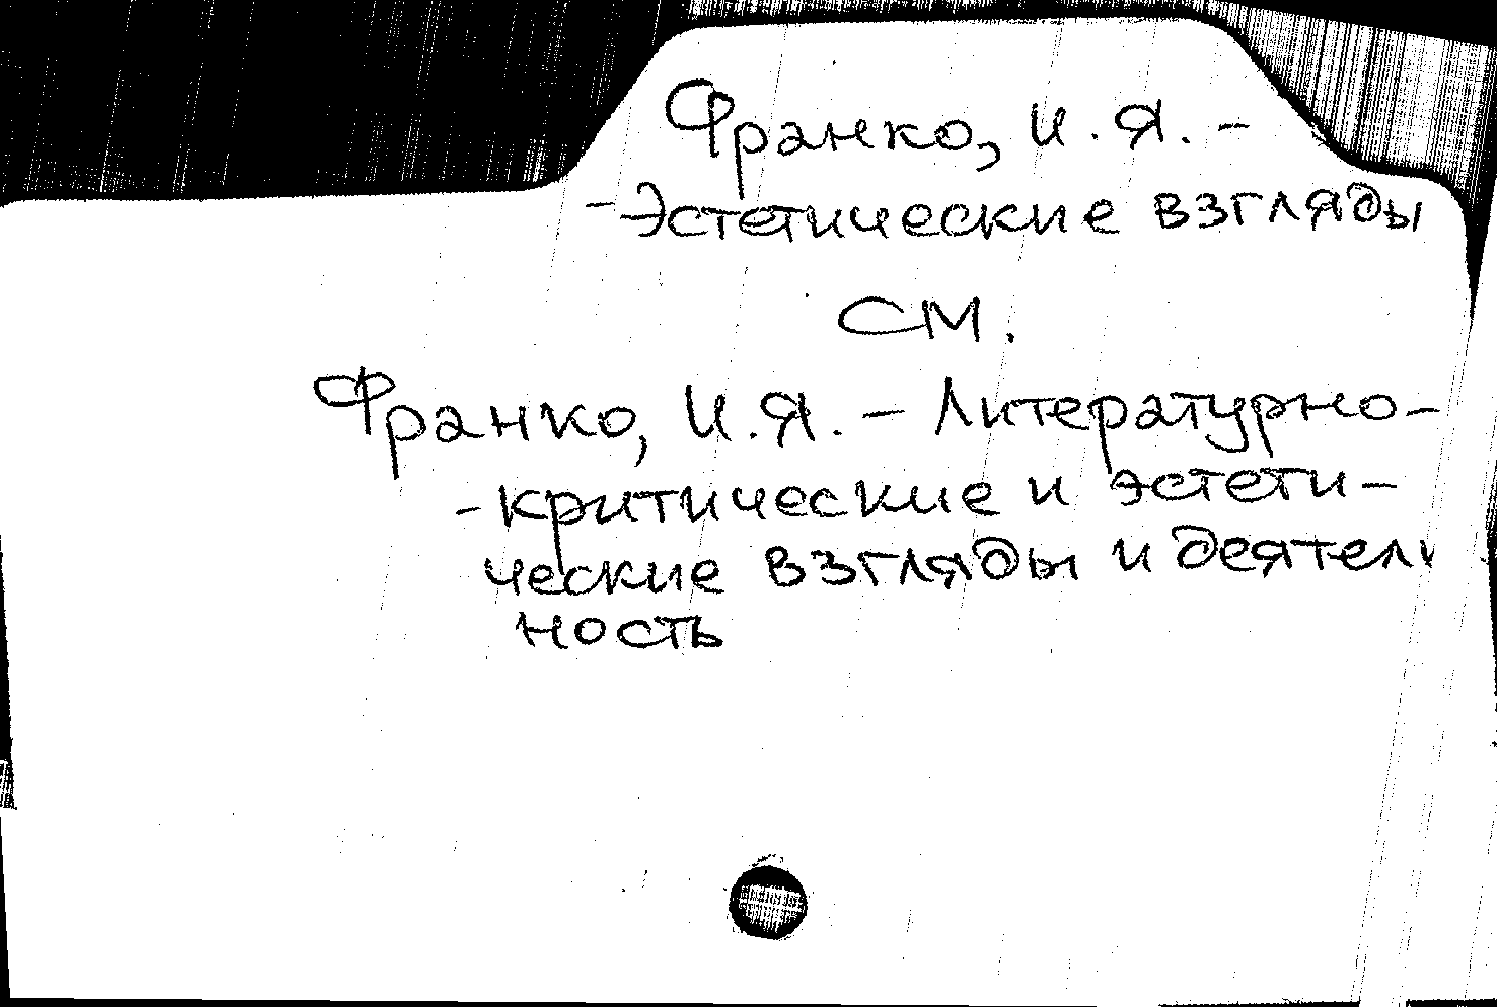 Франко, И.Я. –
– Эстетические взгляды
см.
Франко, И.Я. – Литературно-
-критические и эстети-
ческие взгляды и деятель
ность